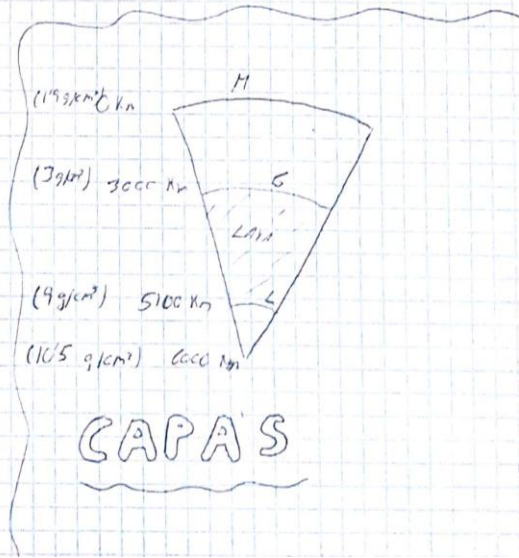 M
(1'9 g/cm³) 0 Km
(3g/cm³) 3000 Km G
(9 g/cm³) 5100 Km L
(10'5 g/cm³) 6000 Km
CAPAS